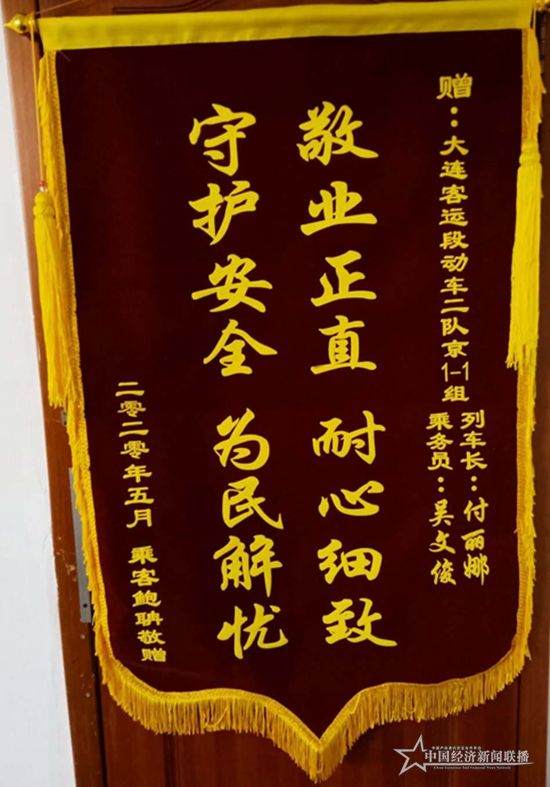 赠：大连客运段动车二队京1-1组
列车长：付丽娜
乘务员：吴文俊
敬业正直 耐心细致
守护安全 为民解忧
二零二零年五月 乘客鲍聃敬赠
中国经济新闻联播